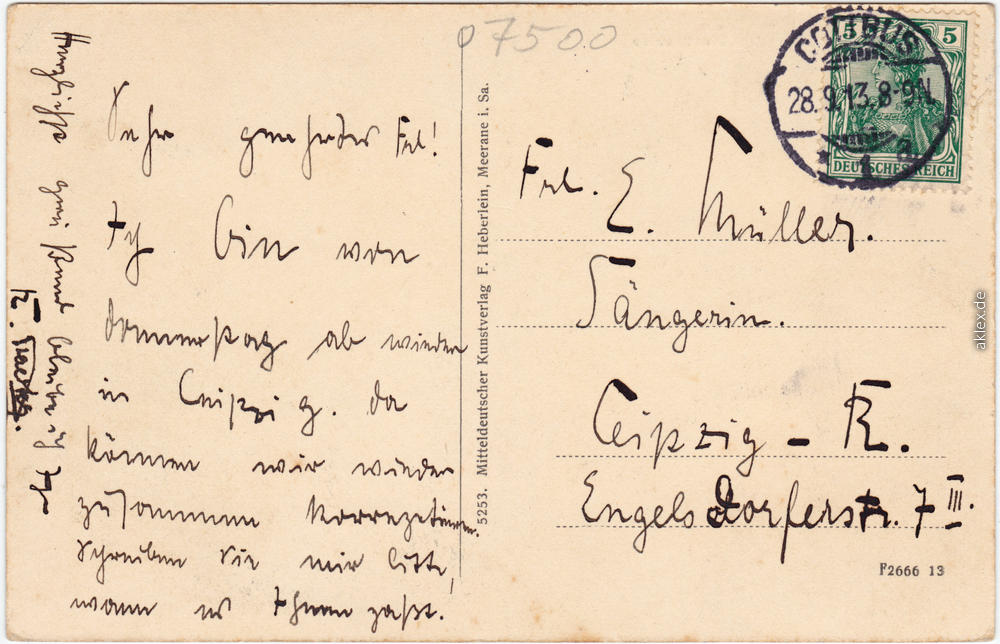 07500
Sehr geehrtes Frl!
Ich bin von
Donnerstag ab wieder
in Leipzig. Da
können wir wieder
zusammen korrepetieren.
Schreiben Sie mir bitte,
wann es Ihnen paßt.
Hochachtungsvoll
5253. Mitteldeutscher Kunstverlag F. Heberlein, Meerane i. Sa.
COTTBUS
28.9.13.8-9N
* 1 a
5 5
DEUTSCHES REICH
Frl. E. Müller.
Sängerin.
Leipzig - R.
Engelsdorferstr. 7 III.
F2666 13
aklex.de